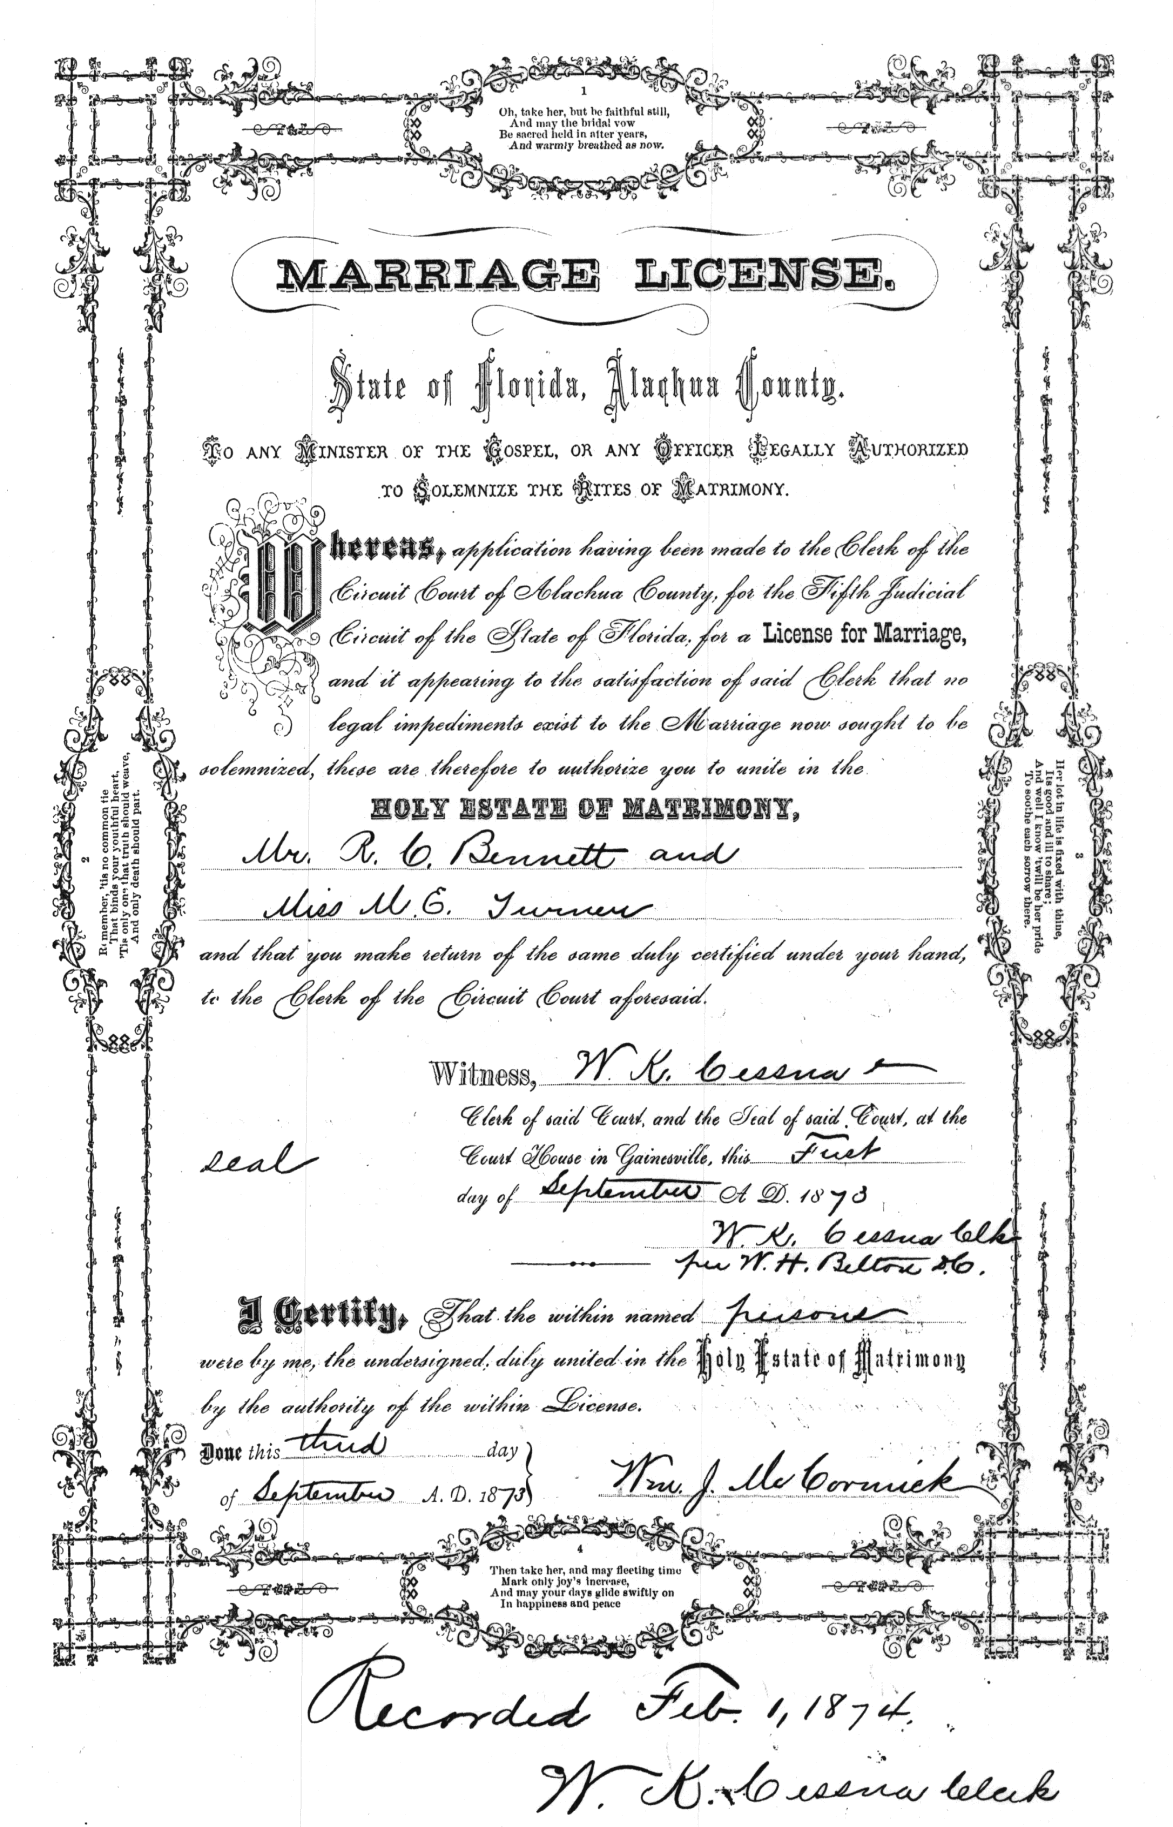 1
Oh, take her, but be faithful still,
And may the bridal vow
Be sacred held in after years,
And warmly breathed as now.
MARRIAGE LICENSE.
State of Florida, Alachua County.
To any Minister of the Gospel, or any Officer Legally Authorized
to Solemnize the Rites of Matrimony.
Whereas, application having been made to the Clerk of the
Circuit Court of Alachua County, for the Fifth Judicial
Circuit of the State of Florida, for a License for Marriage,
and it appearing to the satisfaction of said Clerk that no
legal impediments exist to the Marriage now sought to be
solemnized, these are therefore to authorize you to unite in the
HOLY ESTATE OF MATRIMONY,
Mr. R. C. Bennett and
Miss M. E. Turner
and that you make return of the same duly certified under your hand,
to the Clerk of the Circuit Court aforesaid.
2
Remember, 'tis no common tie
That binds your youthful heart,
'Tis only one that truth should weave,
And only death should part.
3
Her lot in life is fixed with thine,
Its good and ill to share;
And well I know 'twill be her pride
To soothe each sorrow there.
Witness, W. K. Cessna
Clerk of said Court, and the Seal of said Court, at the
seal
Court House in Gainesville, this First
day of September A. D. 1873
W. K. Cessna Clk
per W. H. Belton D.C.
I Certify, That the within named persons
were by me, the undersigned, duly united in the Holy Estate of Matrimony
by the authority of the within License.
Done this third day
of September A. D. 1873
Wm. J. McCormick
4
Then take her, and may fleeting time
Mark only joy's increase,
And may your days glide swiftly on
In happiness and peace
Recorded Feb. 1, 1874.
W. K. Cessna Clerk